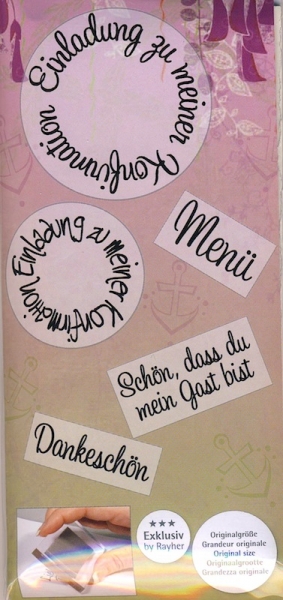 Einladung zu meiner Konfirmation
Einladung zu meiner Konfirmation
Menü
Schön, dass du
mein Gast bist
Dankeschön
★★★
Exklusiv
by Rayher
Originalgröße
Grandeur originale
Original size
Originaalgrootte
Grandezza originale